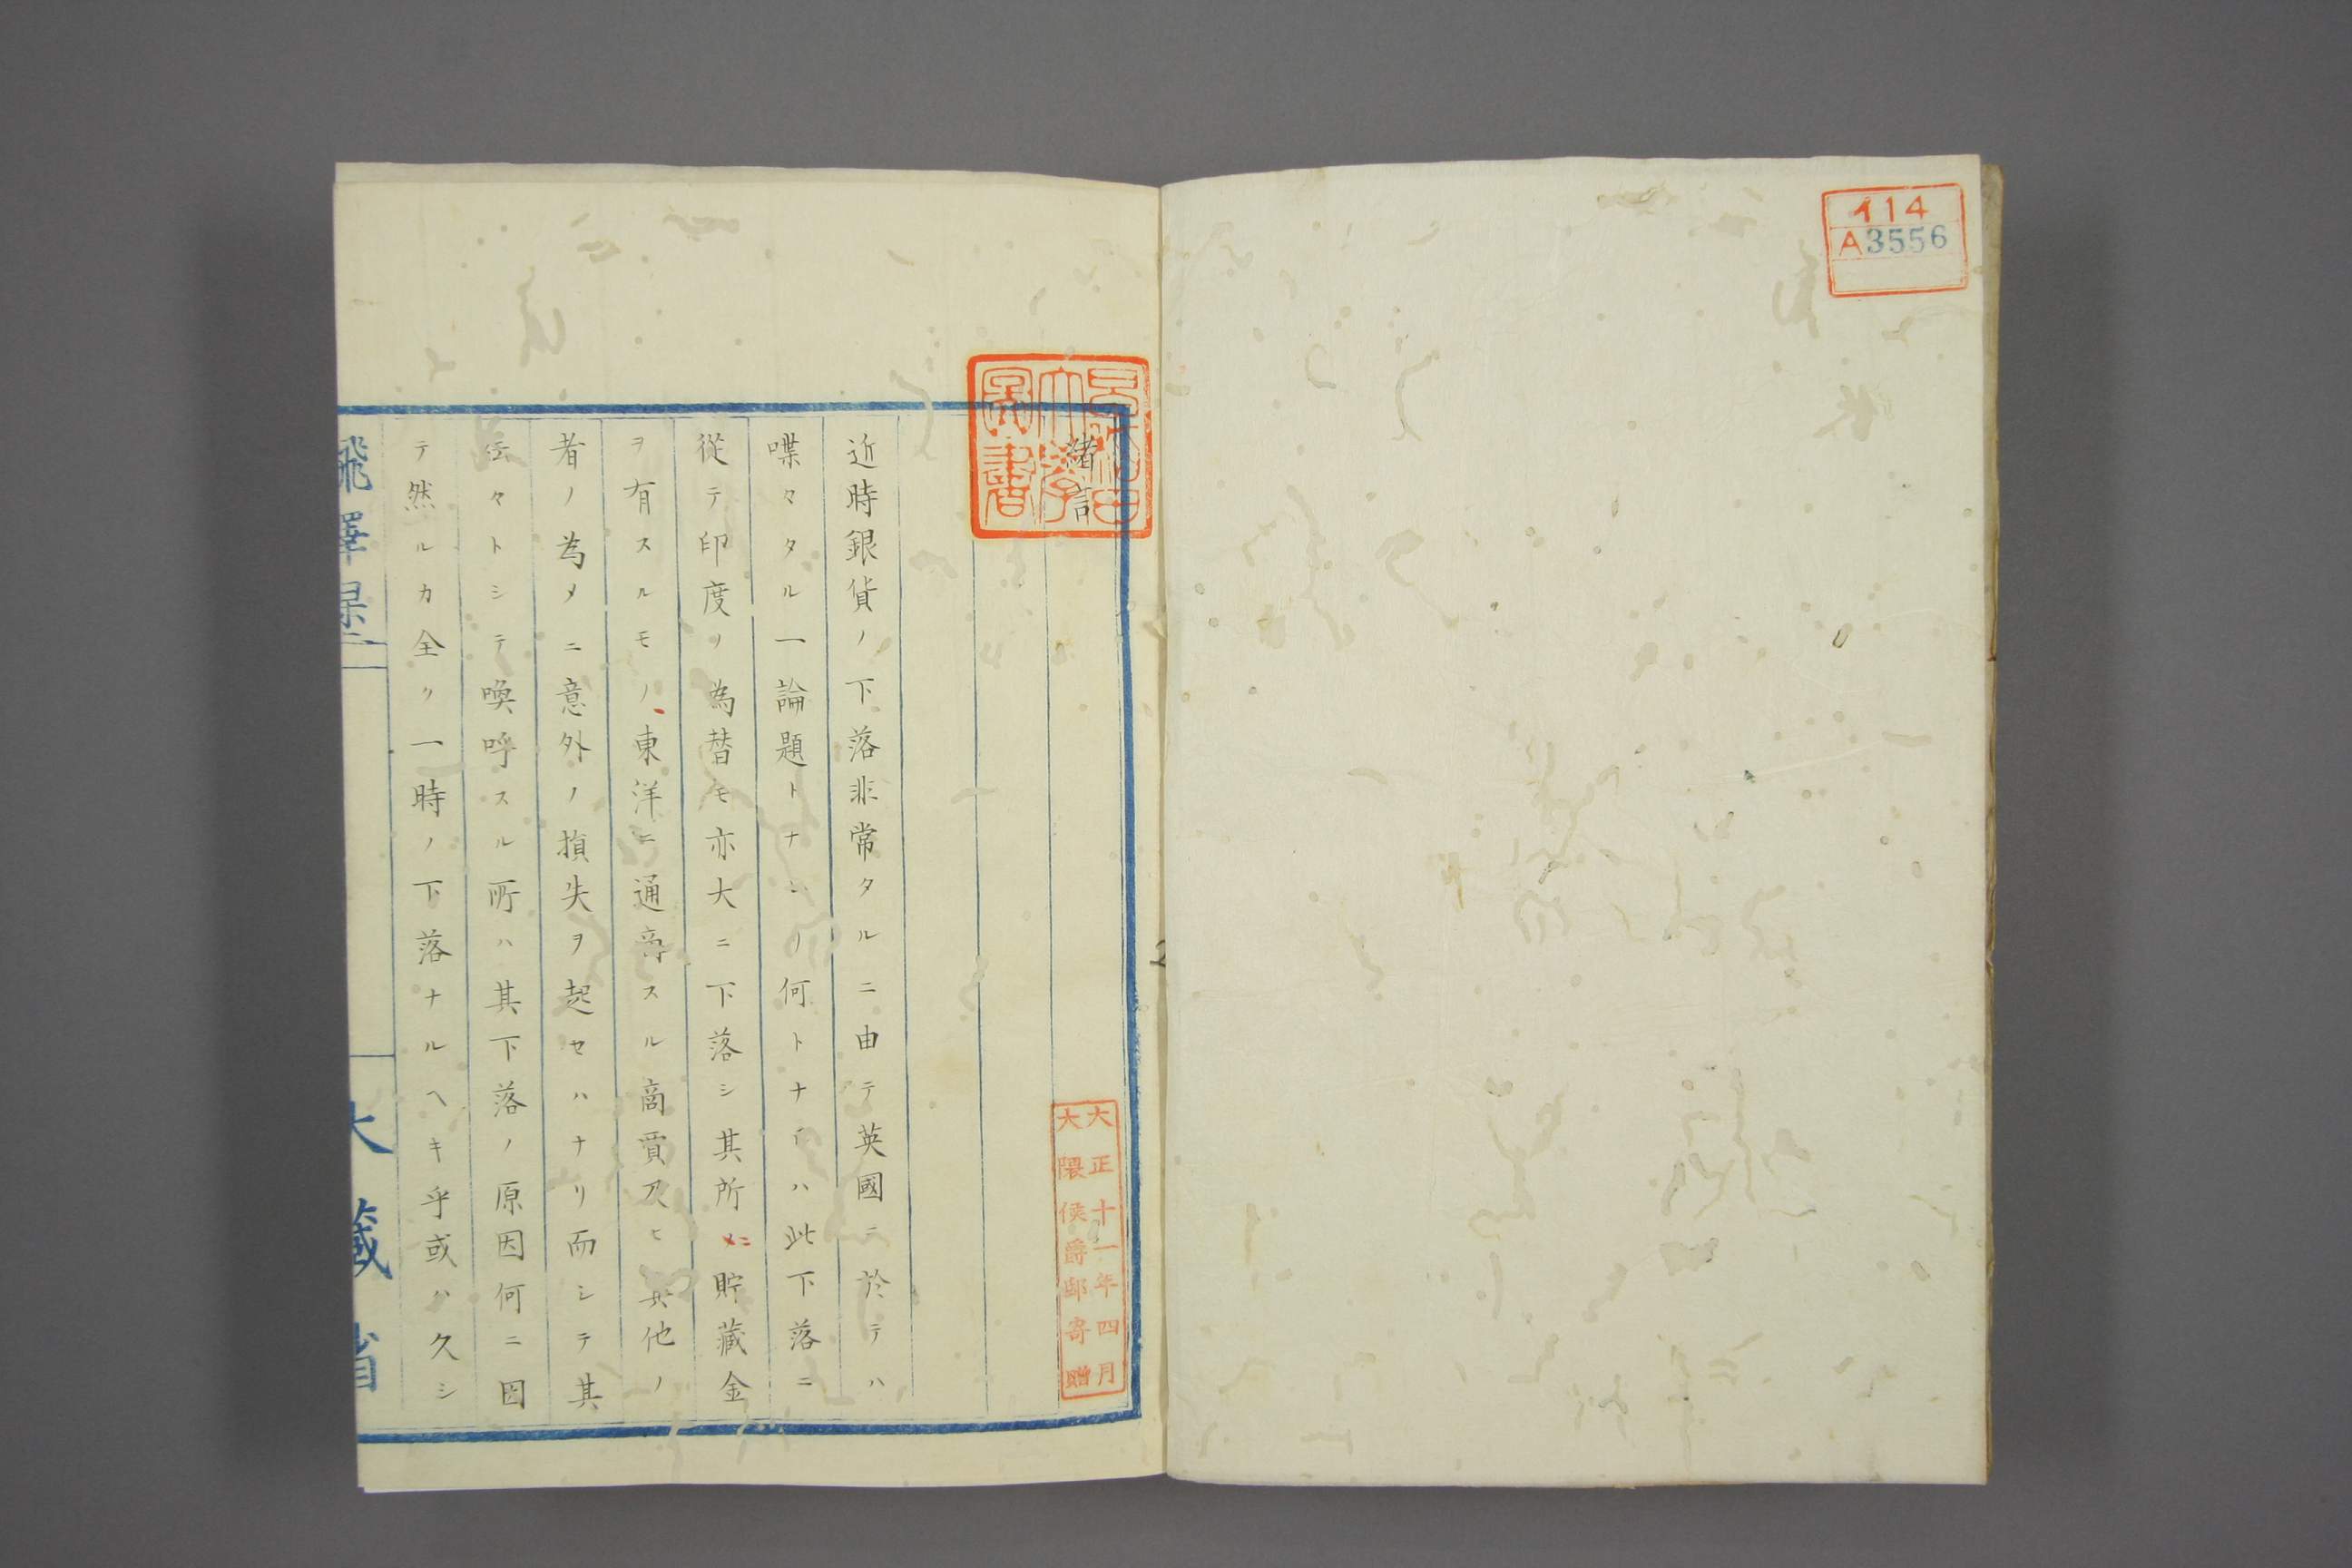 イ14
A3556
早稲田
大學
圖書
緒言
大正十一年四月
大隈侯爵邸寄贈
近時銀貨ノ下落非常タルニ由テ英國ニ於テハ
喋々タル一論題トナレリ何トナレハ此下落ニ
從テ印度ノ為替モ亦大ニ下落シ其所ニ貯藏金
ヲ有スルモノ東洋ニ通商スル商賈及ヒ其他ノ
者ノ為メニ意外ノ損失ヲ起セハナリ而シテ其
云々トシテ喚呼スル所ハ其下落ノ原因何ニ因
テ然ルカ全ク一時ノ下落ナルヘキ乎或ハ久シ
飛譯
大藏省